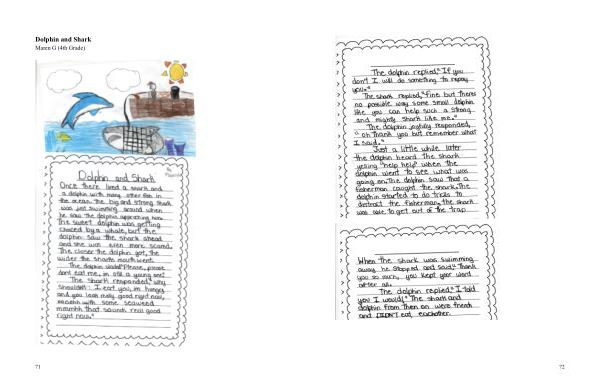 Dolphin and Shark
Maren G (4th Grade)
Dolphin and Shark
Once there lived a shark and
a dolphin with many other fish in
the ocean. The big and strong shark
was just swimming around when
he saw the dolphin approaching him.
The sweet dolphin was getting
chased by a whale, but the
dolphin saw the shark ahead
and she was even more scared.
The closer the dolphin got, the
wider the sharks mouth went.
The dolphin said "Please, please
dont eat me, im still a young one!"
The shark responded, "why
shouldn't I eat you, im hungry
and you look really good right now,
with some seaweed
that sounds real good
right now."
71
The dolphin replied, "If you
don't I will do something to repay
you."
The shark replied, "Fine but theres
no possible way some small dolphin
like you can help such a strong
and mighty shark like me."
The dolphin joyfully responded,
"oh thank you but remember what
I said."
Just a little while later
the dolphin heard the shark
yelling "help help" when the
dolphin went to see what was
going on. The dolphin saw that a
fisherman caught the shark. The
dolphin started to do tricks to
distract the fisherman, the shark
was able to get out of the trap
When the shark was swimming
away he stopped and said, "Thank
you so much, you kept your word
after all.
The dolphin replied, "I told
you I would!" The shark and
dolphin from then on were friends
and DIDN'T eat eachother.
72